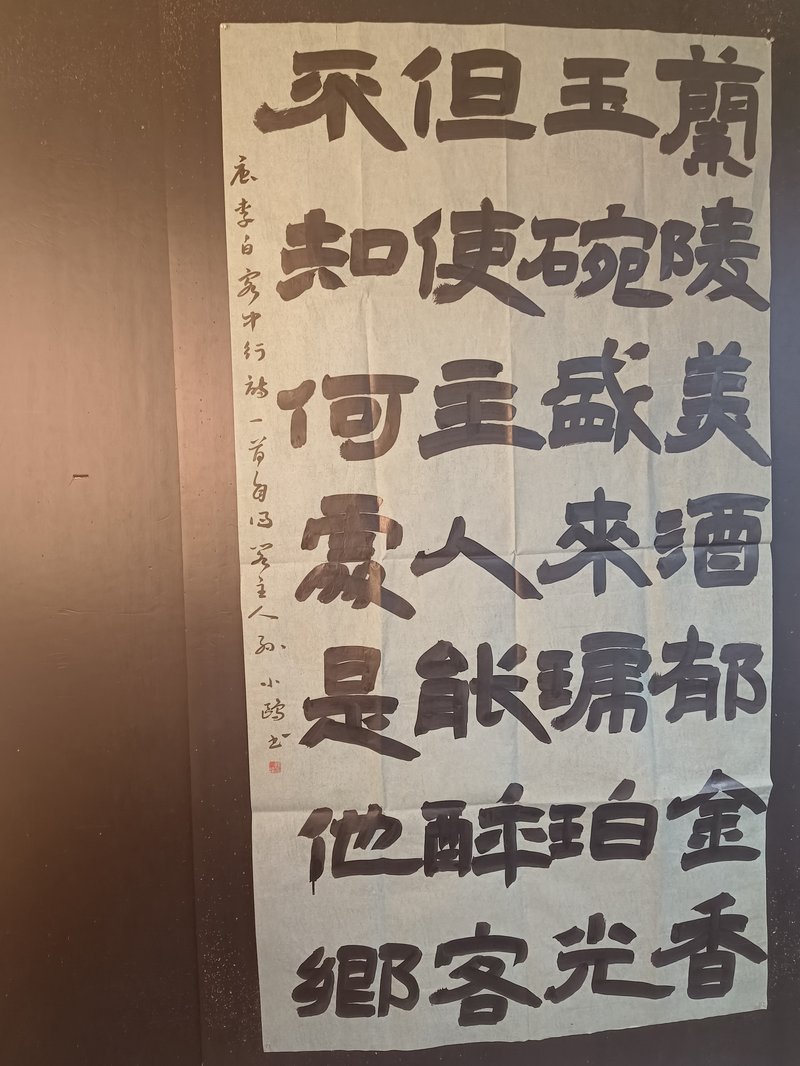 蘭陵美酒郁金香
玉碗盛來琥珀光
但使主人能醉客
不知何處是他鄉
唐李白客中行诗一首自得阁主人孙小鸥书